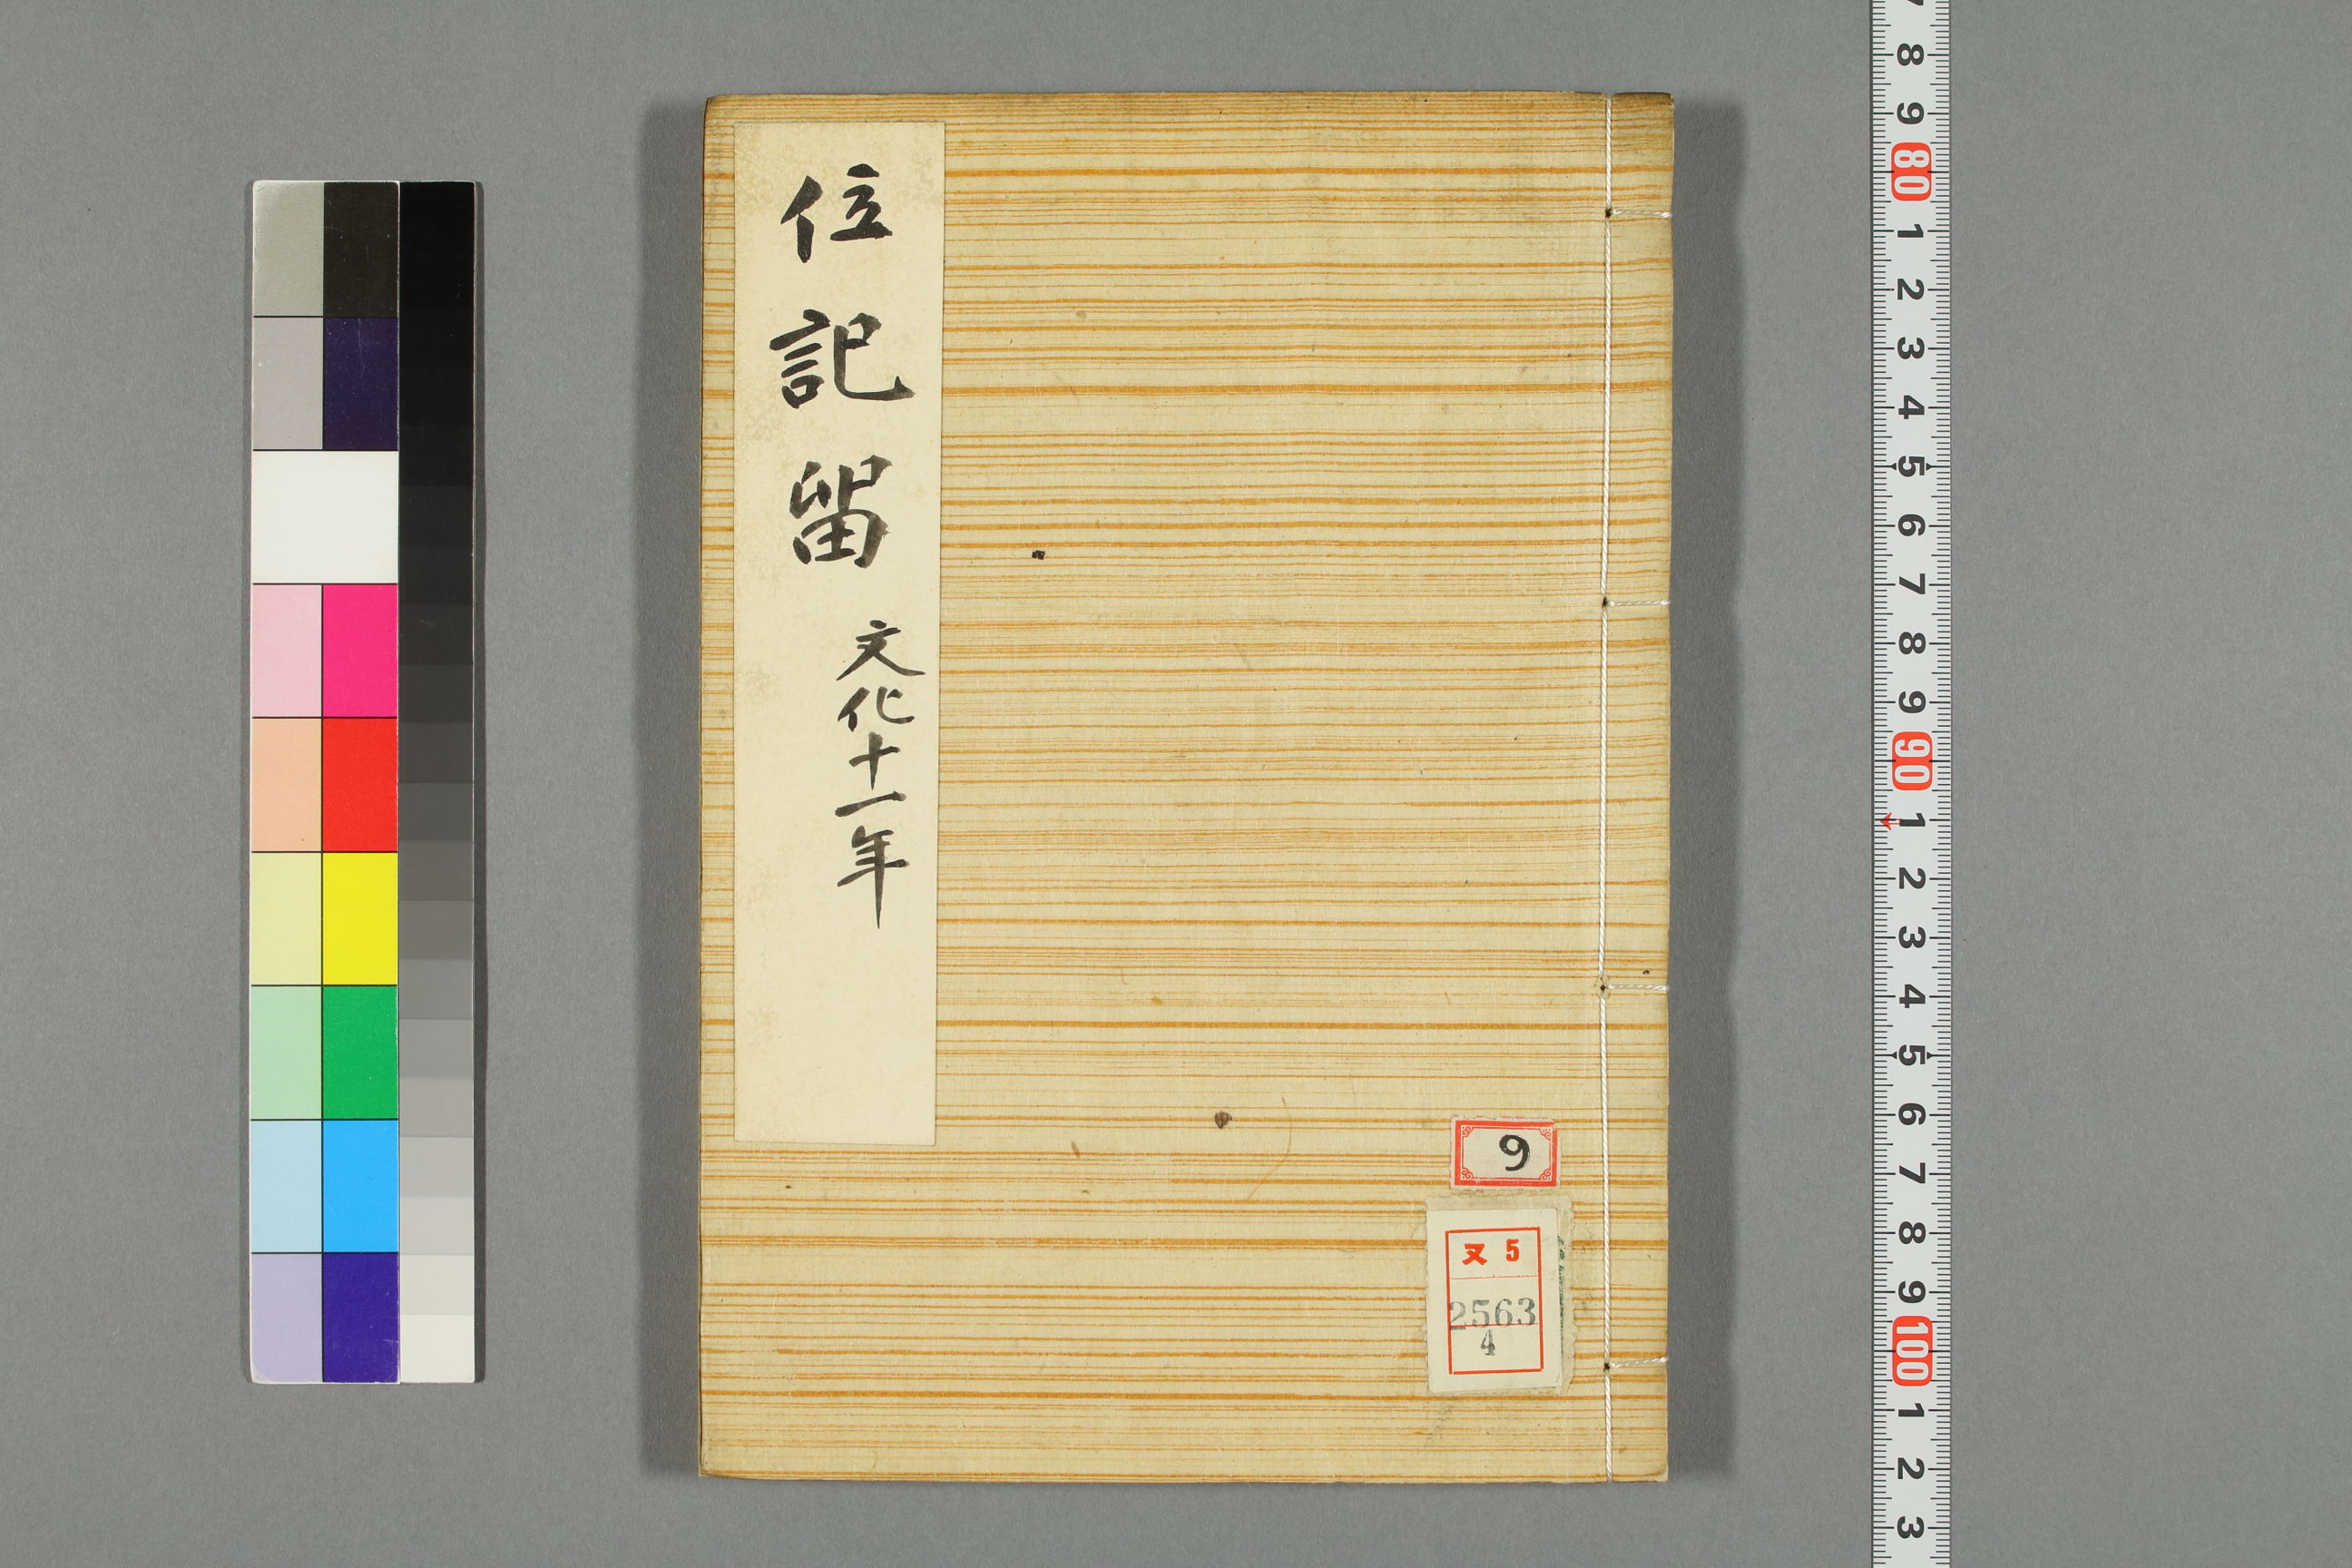 位記留 文化十一年
9
又 5
2563
4
7
8
9
80
1
2
3
4
5
6
7
8
9
90
1
2
3
4
5
6
7
8
9
100
1
2
3